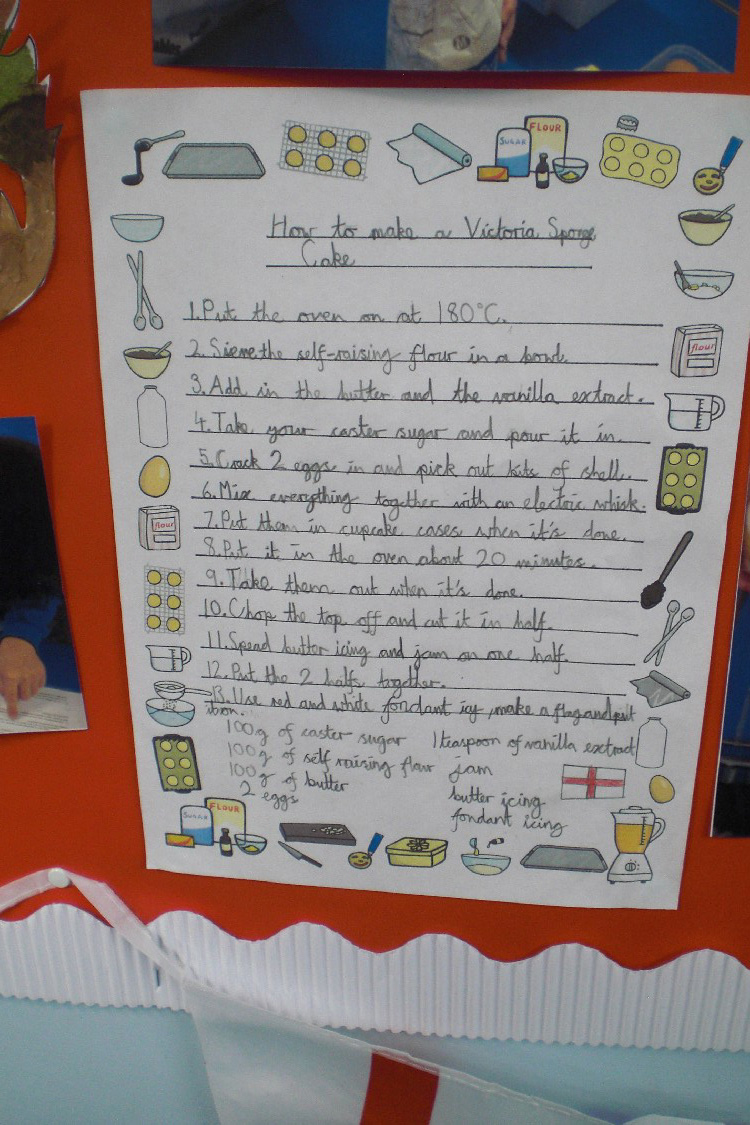 SUGAR
FLOUR
How to make a Victoria Sponge
Cake
1.Put the oven on at 180°C.
2. Sieve the self-raising flour in a bowl.
3. Add in the butter and the vanilla extract.
4. Take your caster sugar and pour it in.
flour
5. Crack 2 eggs in and pick out bits of shell.
6. Mix everything together with an electric whisk.
7. Put them in cupcake cases when it's done.
flour
8. Put it in the oven about 20 minutes.
9. Take them out when it's done.
10. Chop the top off and cut it in half.
11. Spead butter icing and jam on one half.
12. Put the 2 halfs together.
13. Use red and white fondant icy, make a flag and put
it on.
100g of caster sugar
100g of self raising flour
100g of butter
2 eggs
1 teaspoon of vanilla extract
jam
butter icing
fondant icing
SUGAR
FLOUR